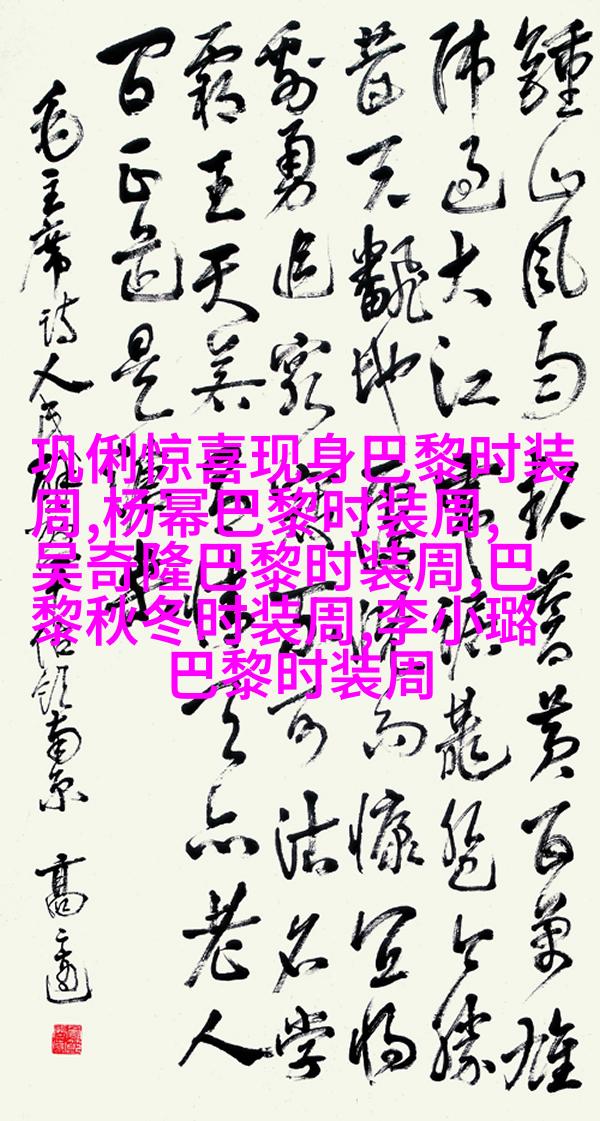 鍾山風雨起蒼黃百萬雄
師過大江虎踞龍盤今勝
昔天飜地覆慨而慷宜將
剩勇追窮寇不可沽名學
霸王天若有情天亦老人
间正道是滄桑
毛主席诗人民解放军佔领南京
巩俐惊喜现身巴黎时装
周,杨幂巴黎时装周,
吴奇隆巴黎时装周,巴
黎秋冬时装周,李小璐
巴黎时装周